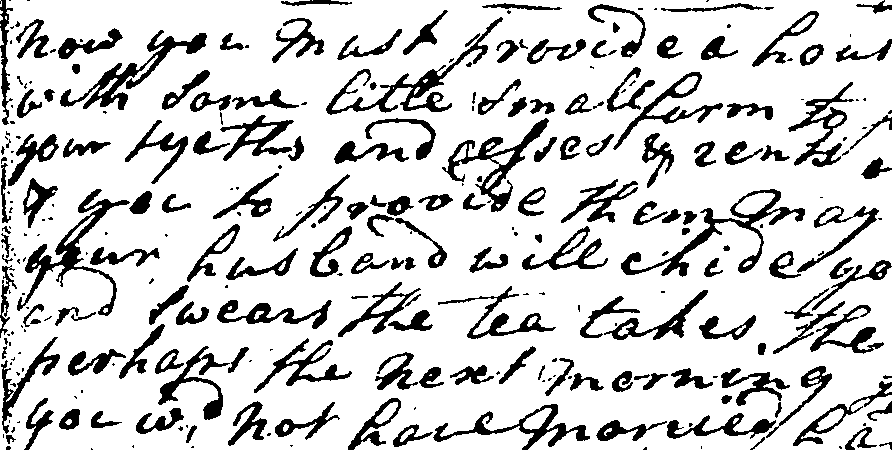 now you must provide a hous
with some litle small farm to
your tyeths and cesses & rents
& you to provide them may
your husband will chide yo
and swears the tea takes the
perhaps the next morning
you wd not have married ha